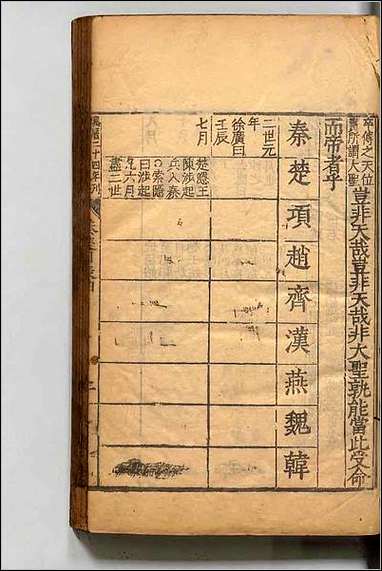 豈非天哉豈非天哉非大聖孰能當此受命
而帝者乎
秦
楚
項
趙
齊
漢
燕
魏
韓
二世元
年
徐廣曰
壬辰
七月
楚隱王
陳涉起
兵入秦
○索隱
曰涉起
凡六月
盡二世